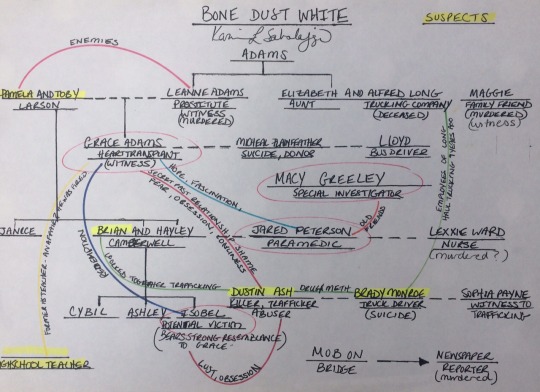 BONE DUST WHITE
SUSPECTS
ADAMS
ENEMIES
PAMELA AND TOBY
LARSON
LEANNE ADAMS
PROSTITUTE
WITNESS
(MURDERED)
ELIZABETH AND ALFRED LONG
AUNT
TRUCKING COMPANY
(DECEASED)
MAGGIE
FAMILY FRIEND
(MURDERED)
(witness)
GRACE ADAMS
HEART TRANSPLANT
(WITNESS)
SUICIDE, DONOR
LLOYD
BUS DRIVER
EMPLOYEES OF LONG
HAUL TRUCKING
MACY GREELEY
SPECIAL INVESTIGATOR
HOPE, FASCINATION,
SECRET PAST RELATIONSHIP, SHAME
FEAR, OBSESSION, LONELINESS
OLD
FRIEND
JANICE
BRIAN AND HAYLEY
CAMBERWELL
JARED PETERSON
PARAMEDIC
LEXXIE WARD
NURSE
(murdered?)
TRAFFICKING
DUSTIN ASH
KILLER, TRAFFICKER
ABUSER
DRUG METH
BRADY MONROE
TRUCK DRIVER
(SUICIDE)
SOPHIA PAYNE
WITNESS TO
TRAFFICKING
CYBIL
ASHLEY
ISOBEL
POTENTIAL VICTIM
(BEARS STRONG RESEMBLANCE
TO GRACE)
LUST, OBSESSION
MOB ON
BRIDGE
NEWSPAPER
REPORTER
(murdered)
HIGHSCHOOL TEACHER